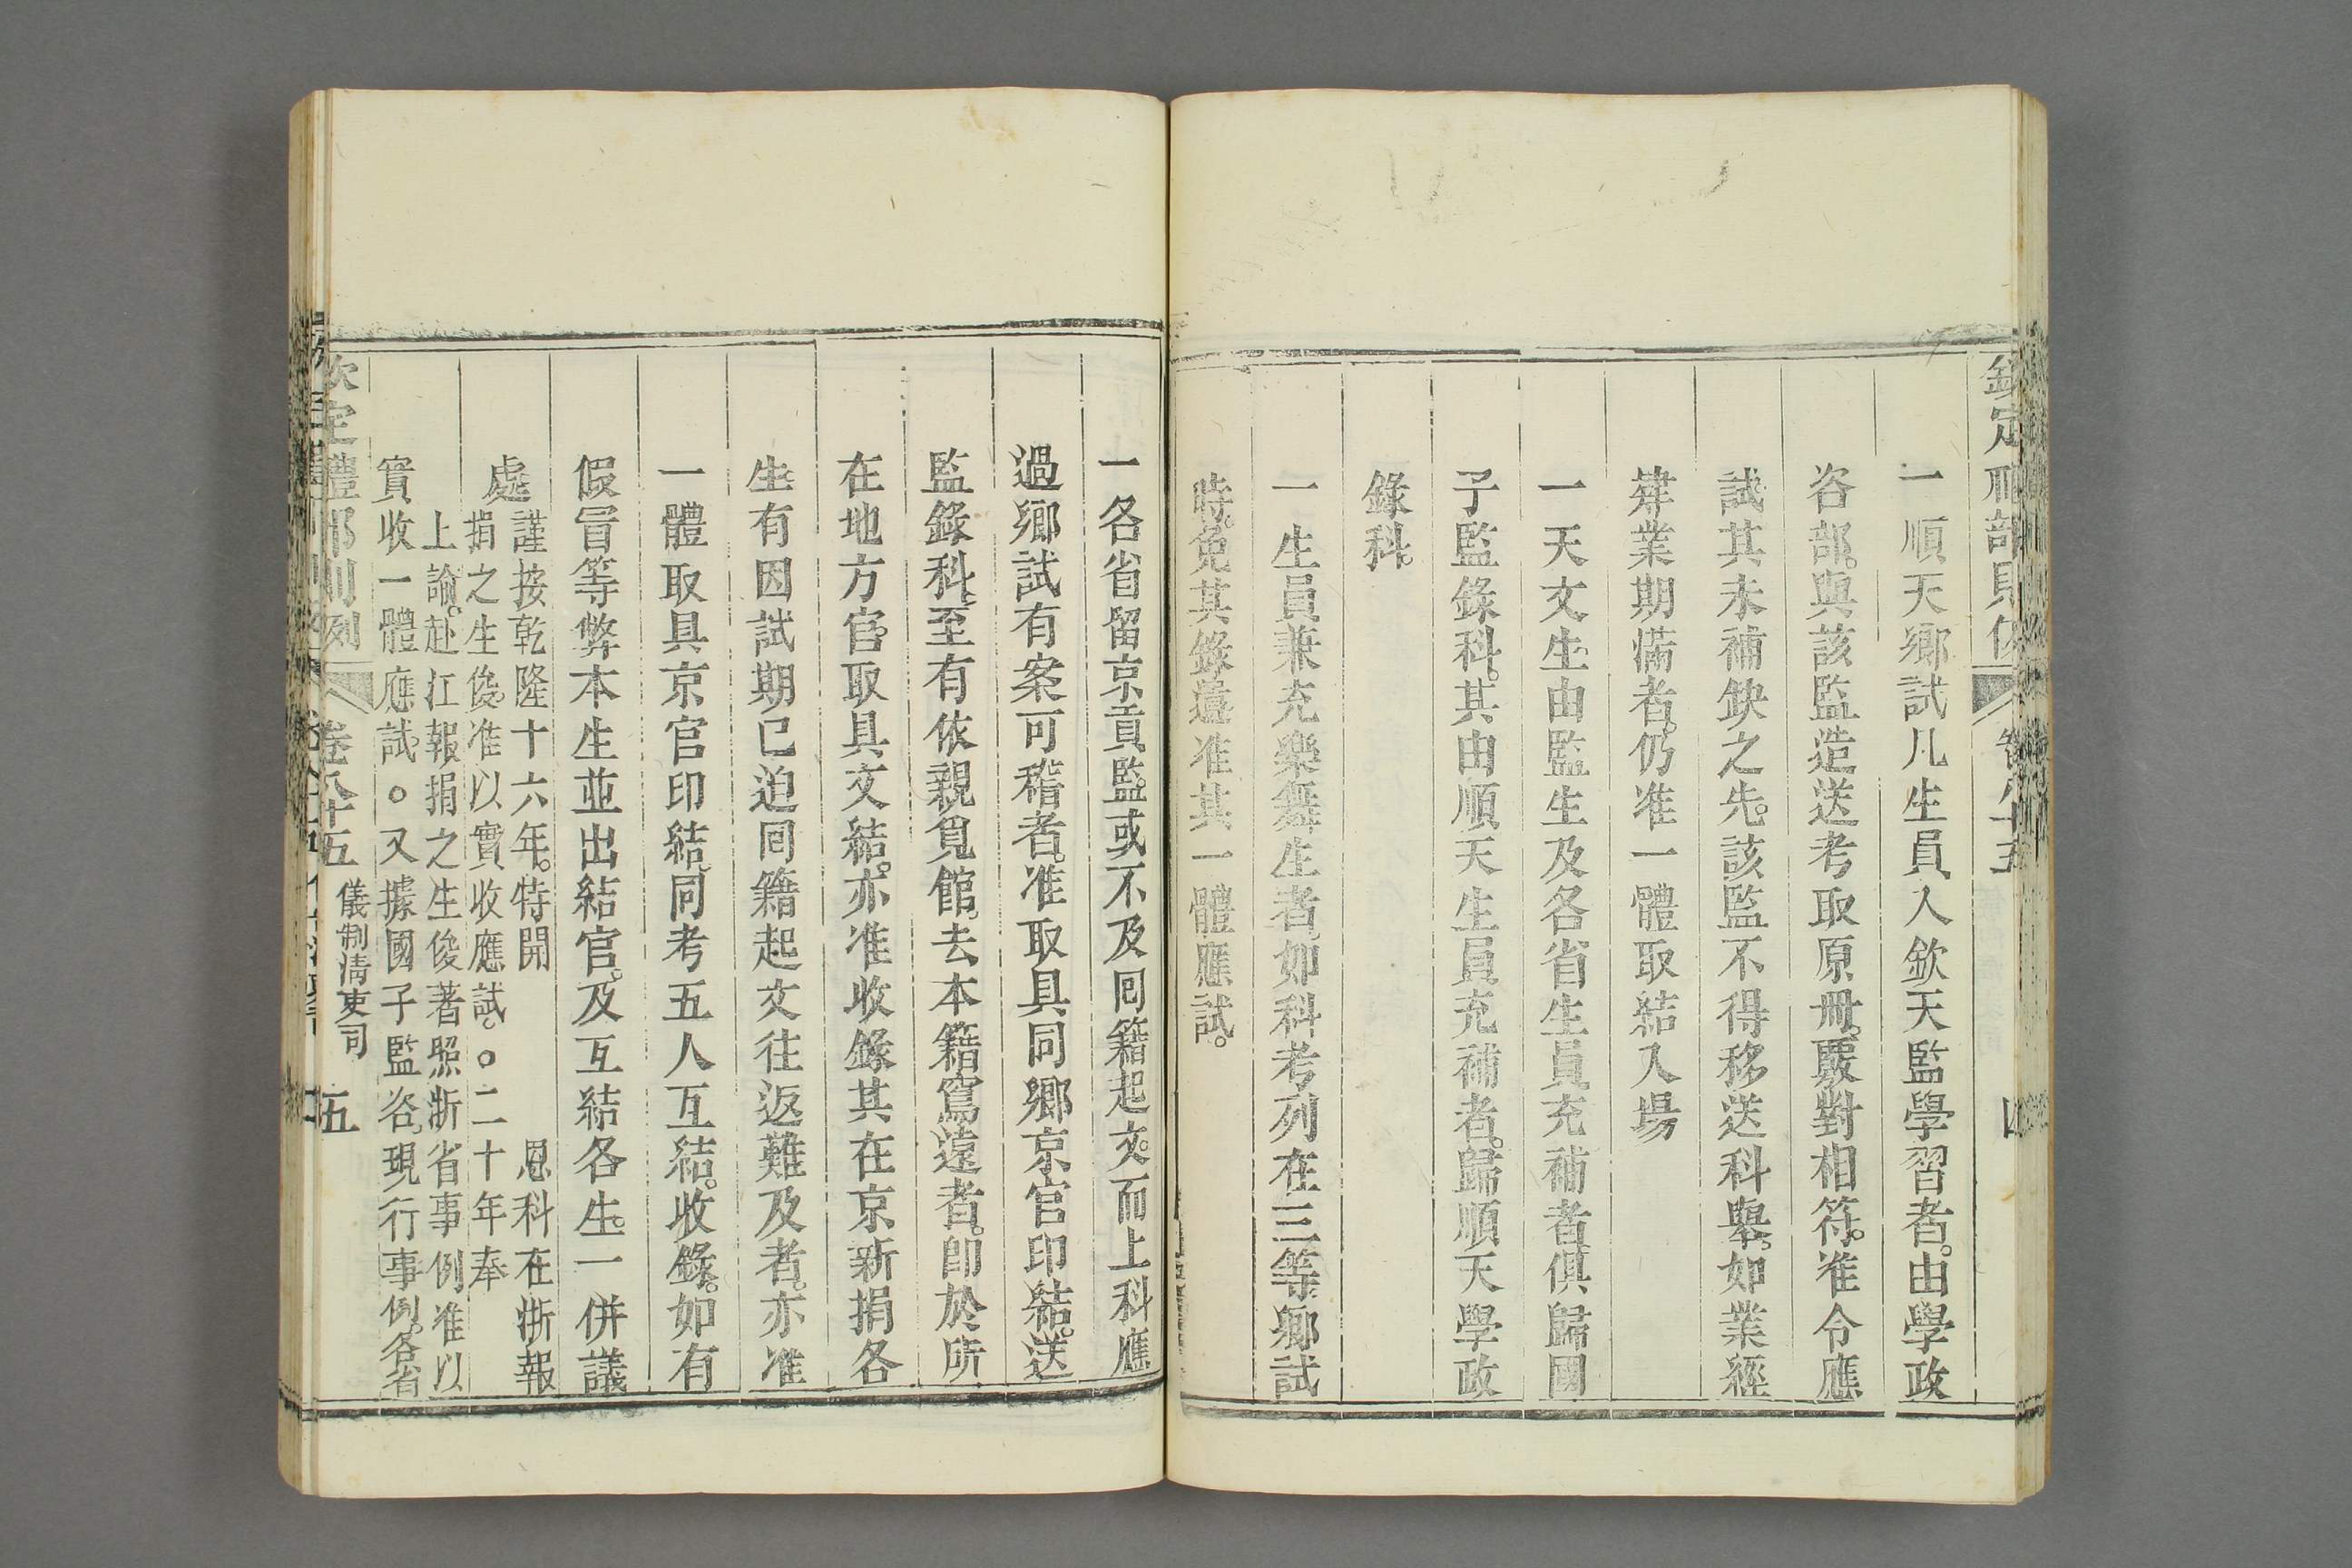 欽定禮部則例
卷八十五
四
一順天鄉試凡生員入欽天監學習者。由學政
咨部。與該監造送考取原冊。覈對相符。准令應
試。其未補缺之先。該監不得移送科舉。如業經
肄業期滿者。仍准一體取結入場
一天文生。由監生及各省生員充補者俱歸國
子監錄科。其由順天生員充補者。歸順天學政
錄科。
一生員兼充樂舞生者。如科考列在三等。鄉試
時。免其錄遺准其一體應試。
一各省留京貢監。或不及囘籍起文。而上科應
過鄉試有案可稽者。准取具同鄉京官印結。送
監錄科。至有依親覓館。去本籍窵遠者。卽於所
在地方官。取具文結。亦准收錄其在京新捐各
生。有因試期已迫囘籍起文往返難及者。亦准
一體取具京官印結。同考五人互結。收錄。如有
假冒等弊本生並出結官。及互結各生。一併議
處
謹按乾隆十六年。特開 恩科在浙報
捐之生俊。准以實收應試。○二十年奉
上諭。赴江報捐之生俊著照浙省事例准以
實收一體應試。○又據國子監咨。現行事例。各省
欽定禮部則例
卷八十五
儀制淸吏司
五